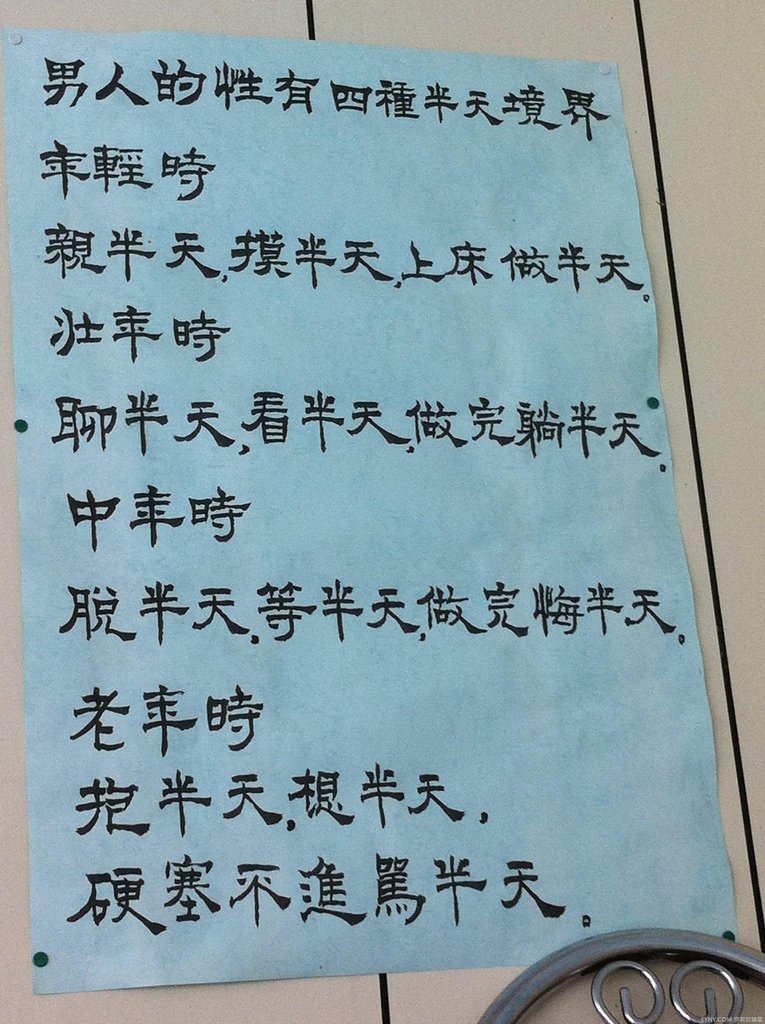 男人的性有四種半天境界
年輕時
親半天,摸半天,上床做半天.
壯年時
聊半天,看半天,做完躺半天.
中年時
脫半天.等半天,做完悔半天.
老年時
抱半天,想半天,
硬塞不進罵半天.
EYNY.COM 伊莉討論區